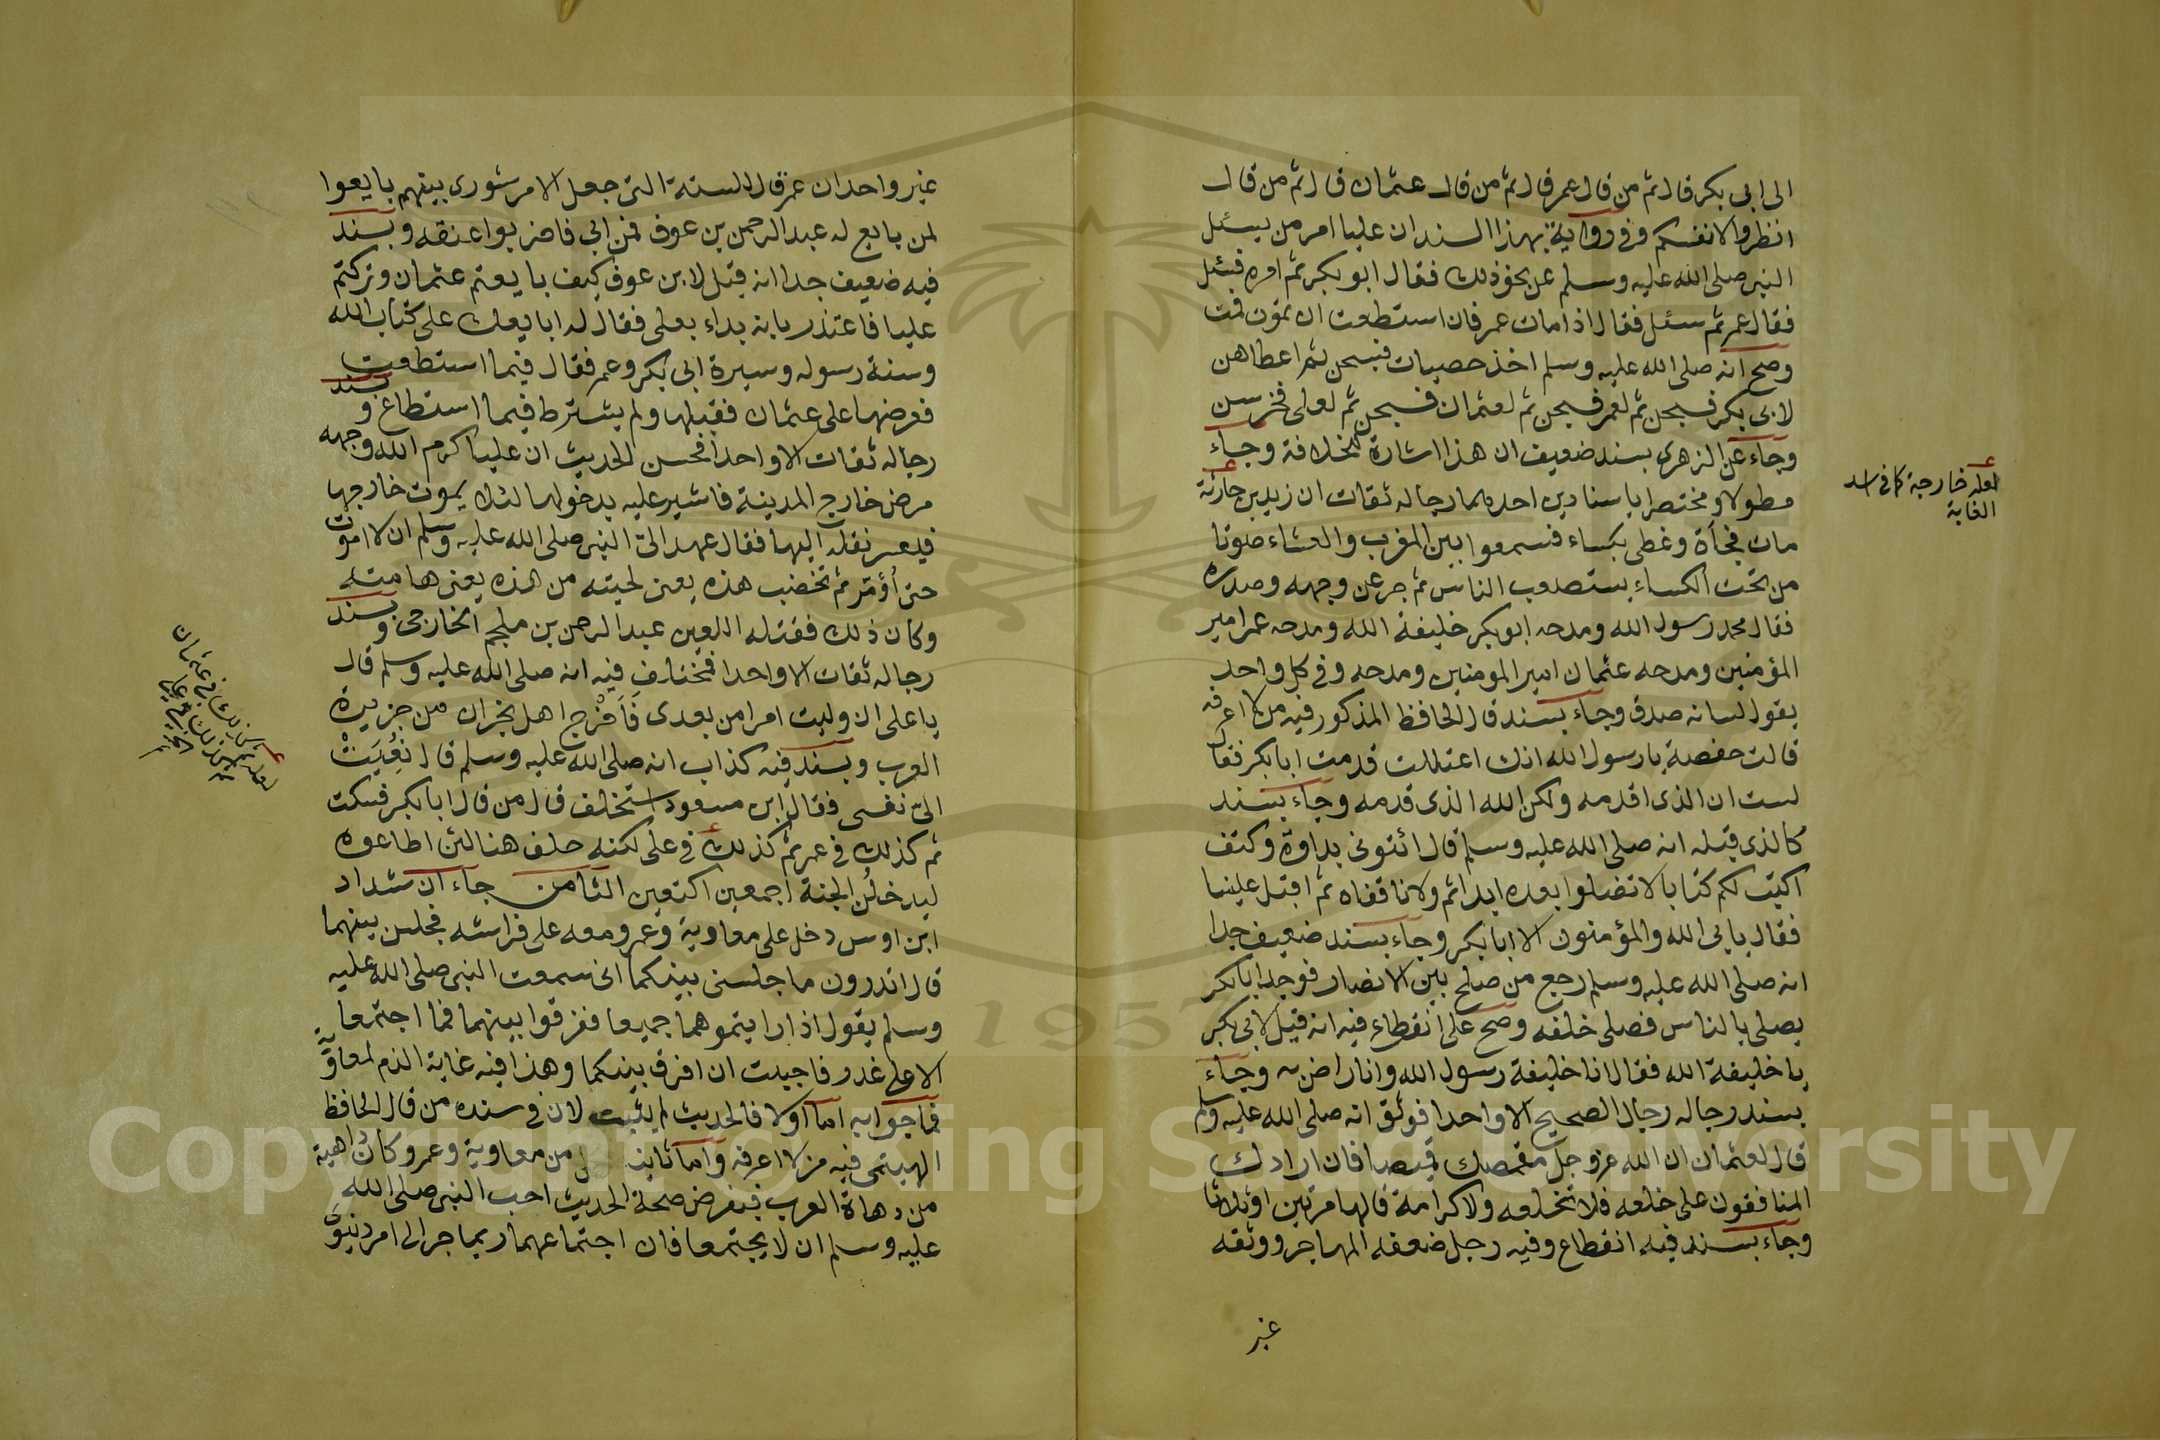 الى ابى بكر قال ثم من قال عمر قال ثم من قال عثمان قال ثم من قال
انظروا لانفسكم وفى رواية بهذا السند ان عليا امر من يسئل
النبى صلى الله عليه وسلم عن نحو ذلك فقال ابو بكر ثم امره فسئل
فقال عمر ثم سئل فقال اذا مات عمر فان استطعت ان تموت فمت
وصح انه صلى الله عليه وسلم اخذ حصيات فسبحن ثم اعطاهن
لابى بكر فسبحن ثم لعمر فسبحن ثم لعثمان فسبحن ثم لعلى فخرسن
وجاء عن الزهرى بسند ضعيف ان هذا اشارة للخلافة وجاء
مطولا ومختصرا باسنادين احدهما رجاله ثقات ان زيد بن حارثة
مات فجأة وغطى بكساء فسمعوا بين المغرب والعشاء صوتا
من تحت الكساء يستصوب الناس ثم جر عن وجهه وصدره
فقال محمد رسول الله ومدحه ابو بكر خليفة الله ومدحه عمر امير
المؤمنين ومدحه عثمان امير المومنين ومدحه وفى كل واحد
يقول لسانه صدق وجاء بسند قال الحافظ المذكور فيه من لا اعرفه
قالت حفصة يا رسول الله انك اعتللت قدمت ابا بكر فقال
لست انا الذى اقدمه ولكن الله الذى قدمه وجاء بسند
كالذى قبله انه صلى الله عليه وسلم قال ائتونى بداوة وكتف
اكتب لكم كتابا لا تضلوا بعده ابدا ثم ولانا قفاه ثم اقبل علينا
فقال يابى الله والمؤمنون الا ابا بكر وجاء بسند ضعيف جدا
انه صلى الله عليه وسلم رجع من صلح بين الانصار فوجد ابا بكر
يصلى بالناس فصلى خلفه وصح على انقطاع فيه انه قيل لابى بكر
يا خليفة الله فقال انا خليفة رسول الله وانا راض به وجاء
بسند رجاله رجال الصحيح الا واحدا فوثق انه صلى الله عليه وسلم
قال لعثمان ان الله عز وجل مقمصك قميصا فان ارادك
المنافقون على خلعه فلا تخلعه ولا كرامة قالها مرتين او ثلاثا
وجاء بسند فيه انقطاع وفيه رجل ضعفه المهاجر ووثقه
غير
لعله خارجة كما فى اسد
الغابة
غير واحد ان عمر قال للستة التى جعل الامر شورى بينهم بايعوا
لمن بايع له عبد الرحمن بن عوف فمن ابى فاضربوا عنقه وبسند
فيه ضعيف جدا انه قيل لابن عوف كيف بايعتم عثمان وتركتم
عليا فاعتذر بانه بداء بعلى فقال له ابايعك على كتاب الله
وسنة رسوله وسيرة ابى بكر وعمر فقال فيما استطعت
فعرضها على عثمان فقبلها ولم يشترط فيما استطاع وبسند
رجاله ثقات الا واحدا فحسن الحديث ان عليا كرم الله وجهه
مرض خارج المدينة فاشير عليه بدخولها لئلا يموت خارجها
فيعسر نقله اليها فقال عهد الى النبى صلى الله عليه وسلم ان لا اموت
حتى أؤمر ثم تخضب هذه يعنى لحيته من هذه يعنى هامته
وكان ذلك فقتله اللعين عبد الرحمن بن ملجم الخارجى وبسند
رجاله ثقات الا واحدا فمختلف فيه انه صلى الله عليه وسلم قال
يا على ان وليت امرا من بعدى فَأَخْرِج اهل نجران من جزيرة
العرب وبسند فيه كذاب انه صلى الله عليه وسلم قال نُعِيَتْ
الىّ نفسى فقال ابن مسعود استخلف قال من قال ابا بكر فسكت
ثم كذلك فى عمر ثم كذلك فى على لكنه حلف هنا لئن اطاعوه
ليدخلن الجنة اجمعين اكتعين الثامن جاء ان شداد
ابن اوس دخل على معاوية وعمرو معه على فراشه فجلس بينهما
قال اتدرون ما جلسنى بينكما انى سمعت النبى صلى الله عليه
وسلم يقول اذا رايتموهما جميعا ففرقوا بينهما فما اجتمعا
الا على غدر فاحببت ان افرق بينكما وهذا فيه غاية الذم لمعاوية
فما جوابه اما اولا فالحديث لم يثبت لان فى سنده من قال الحافظ
الهيتمى فيه من لا اعرفه واما ثانيا من معاوية وعمرو كان داهية
من دهاة العرب فبفرض صحة الحديث احب النبى صلى الله
عليه وسلم ان لا يجتمعا فان اجتماعهما ربما جر الى امر دنيوى
Copyright © King Saud University
1957